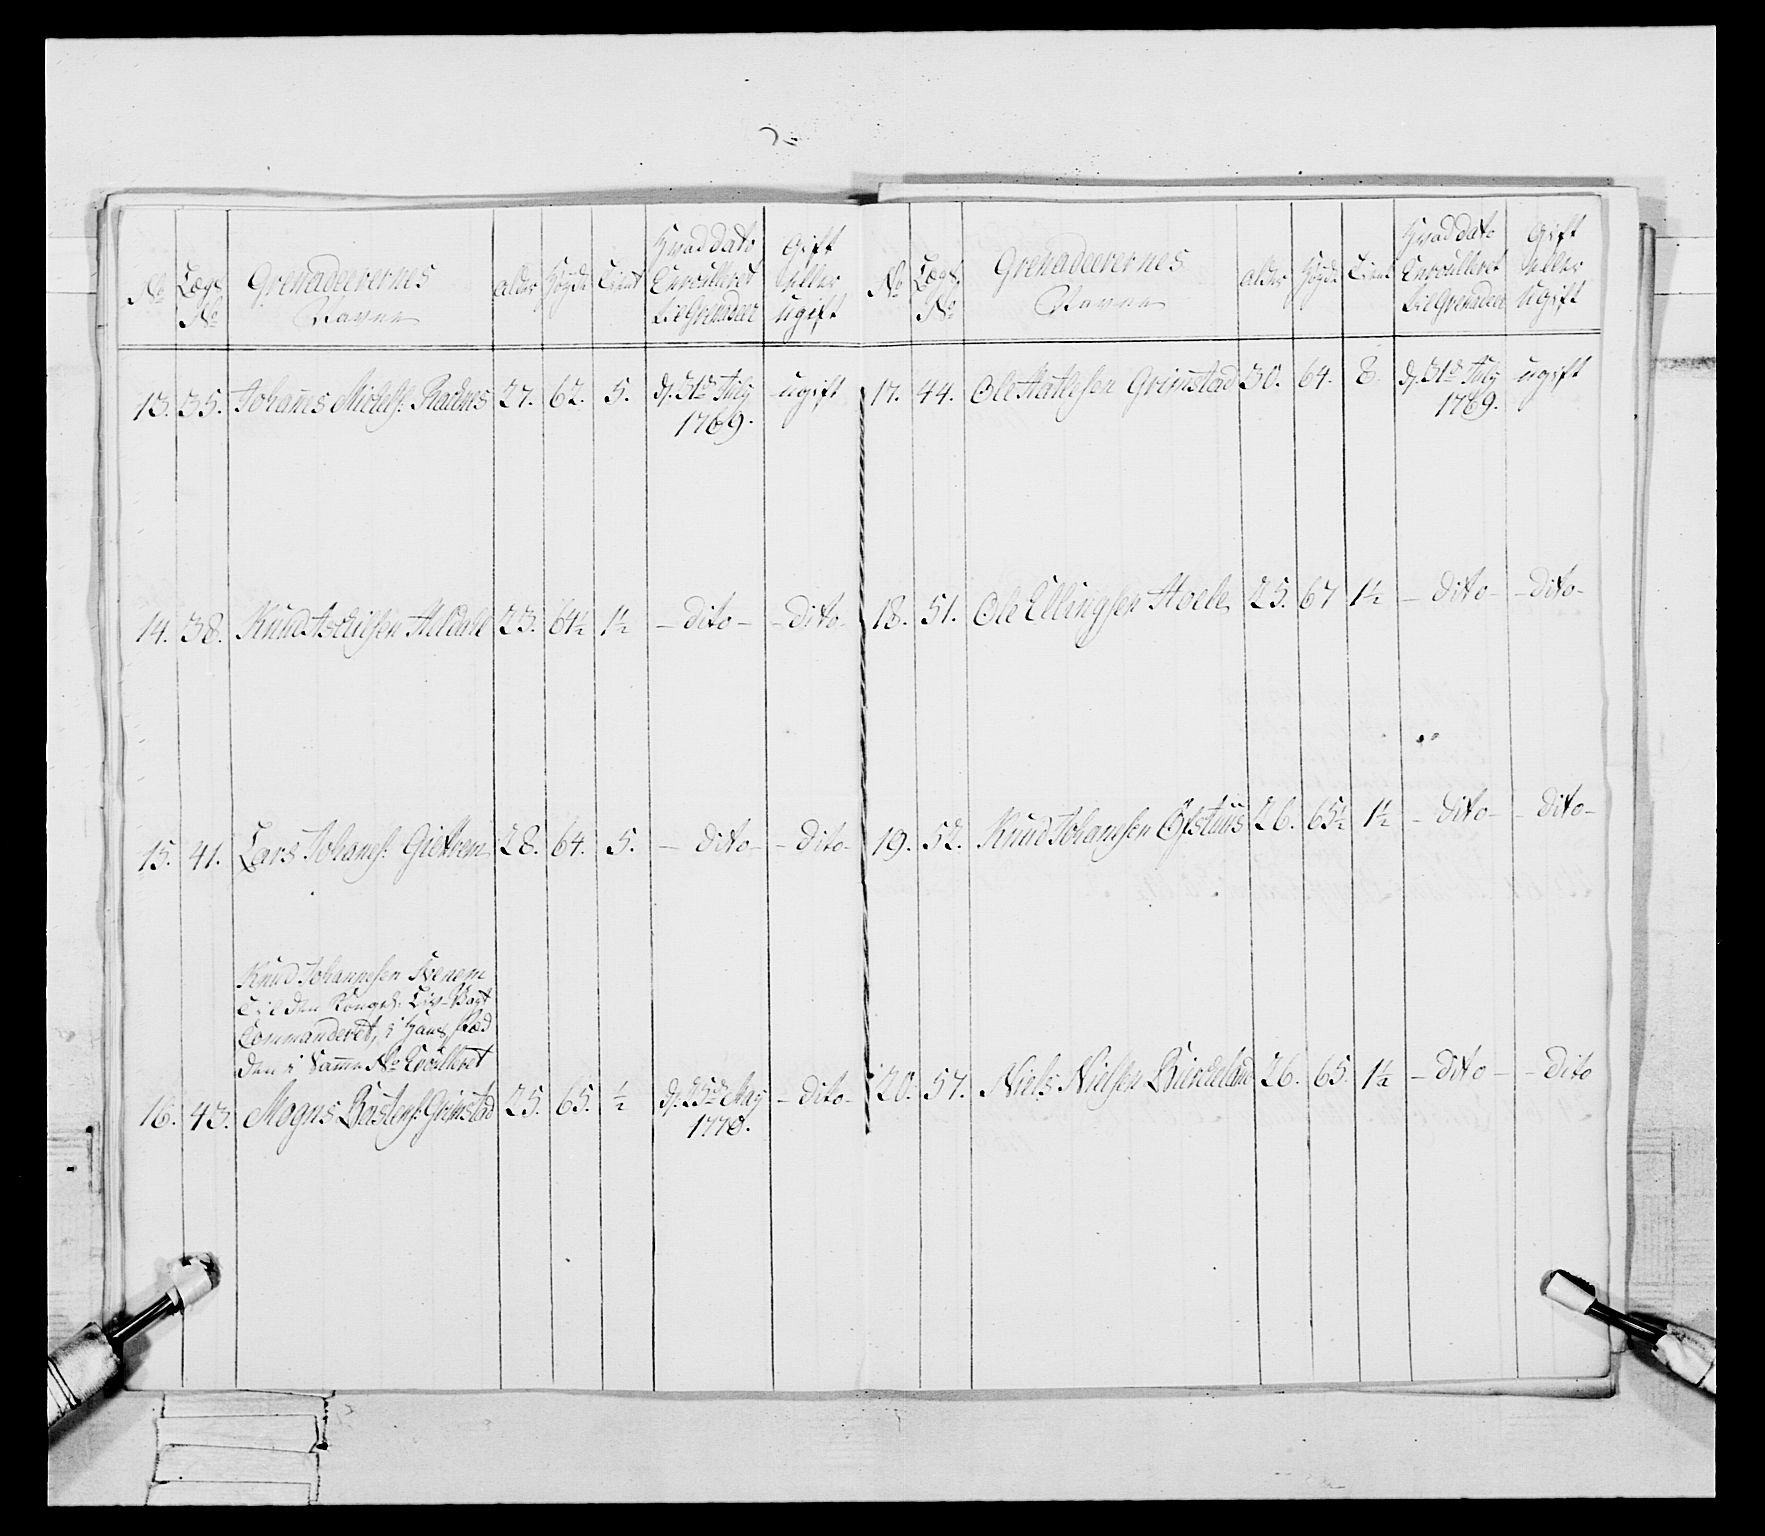 No
Lægs No
Grenadeerernes Navne
alder
Høyde
Tient
Hvad dato Enroulleret til Grenadeer
Gift eller ugift
13. 35. Johanes Michels: Raknes 27. 62. 5. d. 31te July 1769. ugift
14. 38. Knud 23. 64½ 1½ – dito – – dito –
15. 41. Lars Johans: 28. 64. 5. – dito – – dito –
Knud Johannesen
til den Kongel: Liv-Vagt
Commanderet, i hans stæd
den i samme No Enroulleret
16. 43. Mogns Grimstad 25. 65. ½ d. 25de May 1770. – dito –
No
Lægs No
Grenadeerernes Navne
alder
Høyde
Tient
Hvad dato Enroulleret til Grenadeer
Gift eller ugift
17. 44. Ole Grimstad 30. 64. 8. d. 31te July 1769. ugift
18. 51. Ole Ellingsen 25. 67 1½ – dito – – dito –
19. 52. Knud Johansen 26. 65½ 1½ – dito – – dito –
20. 57. Niels Nielsen Birkeland 26. 65. 1½ – dito – – dito